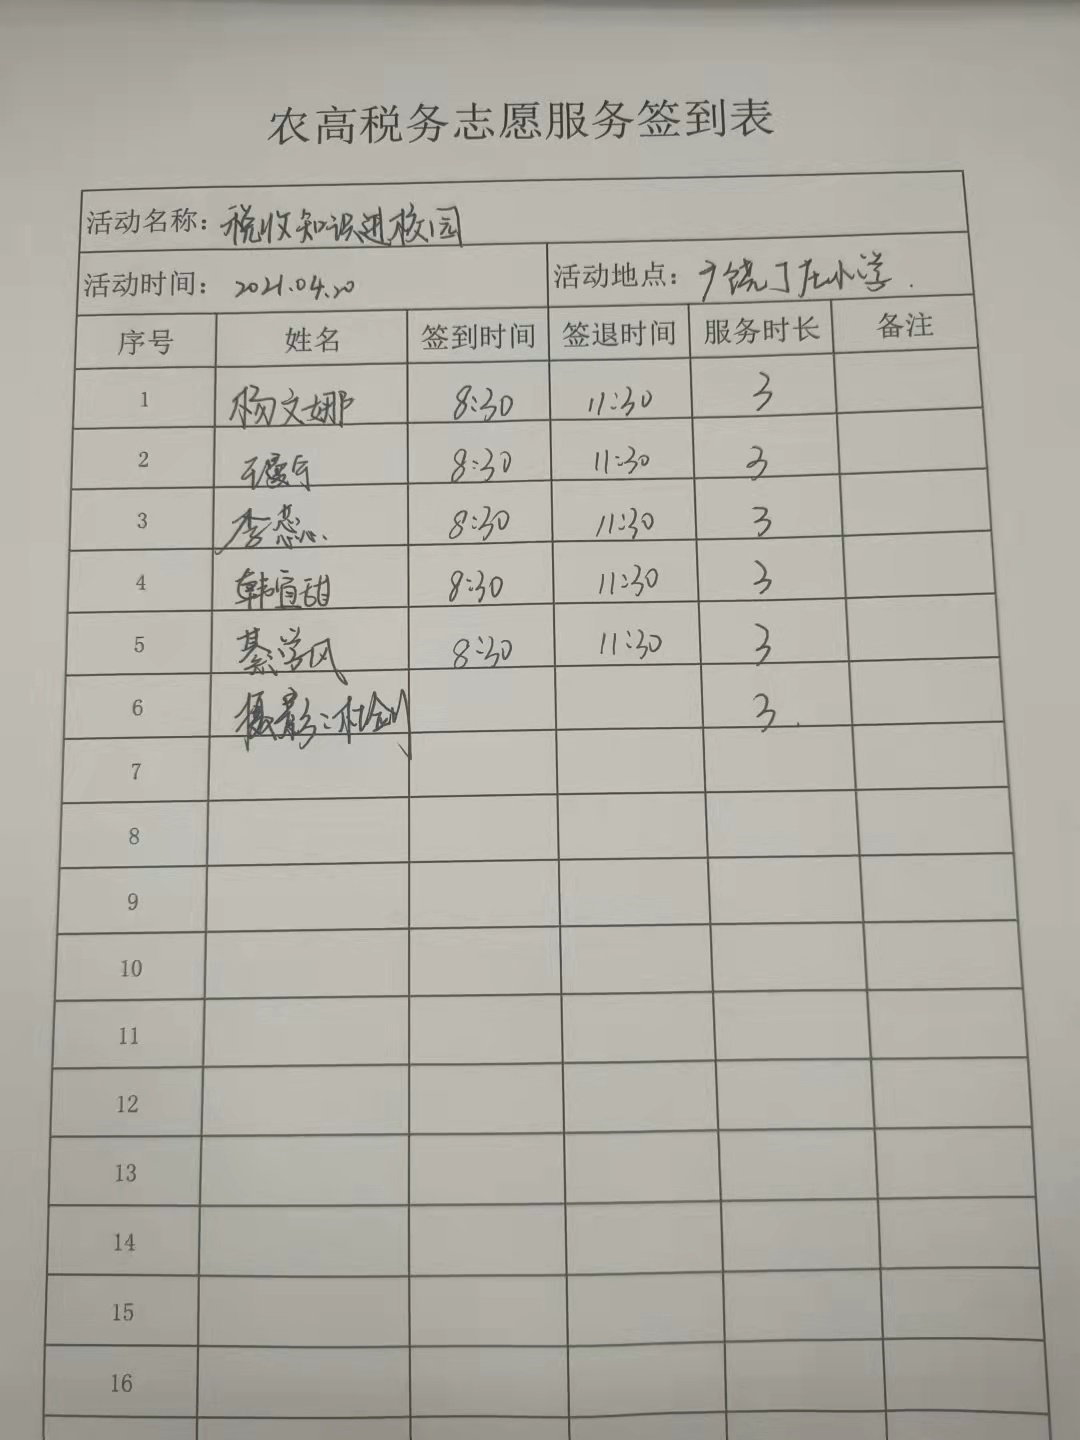 农高税务志愿服务签到表
活动名称：税收知识进校园
活动时间：2021.04.20 活动地点：广饶丁庄小学.
序号 姓名 签到时间 签退时间 服务时长 备注
1 杨文娜 8:30 11:30 3
2 8:30 11:30 3
3 李蕊 8:30 11:30 3
4 韩宣甜 8:30 11:30 3
5 綦学风 8:30 11:30 3
6 摄影：杜剑 3.
7
8
9
10
11
12
13
14
15
16